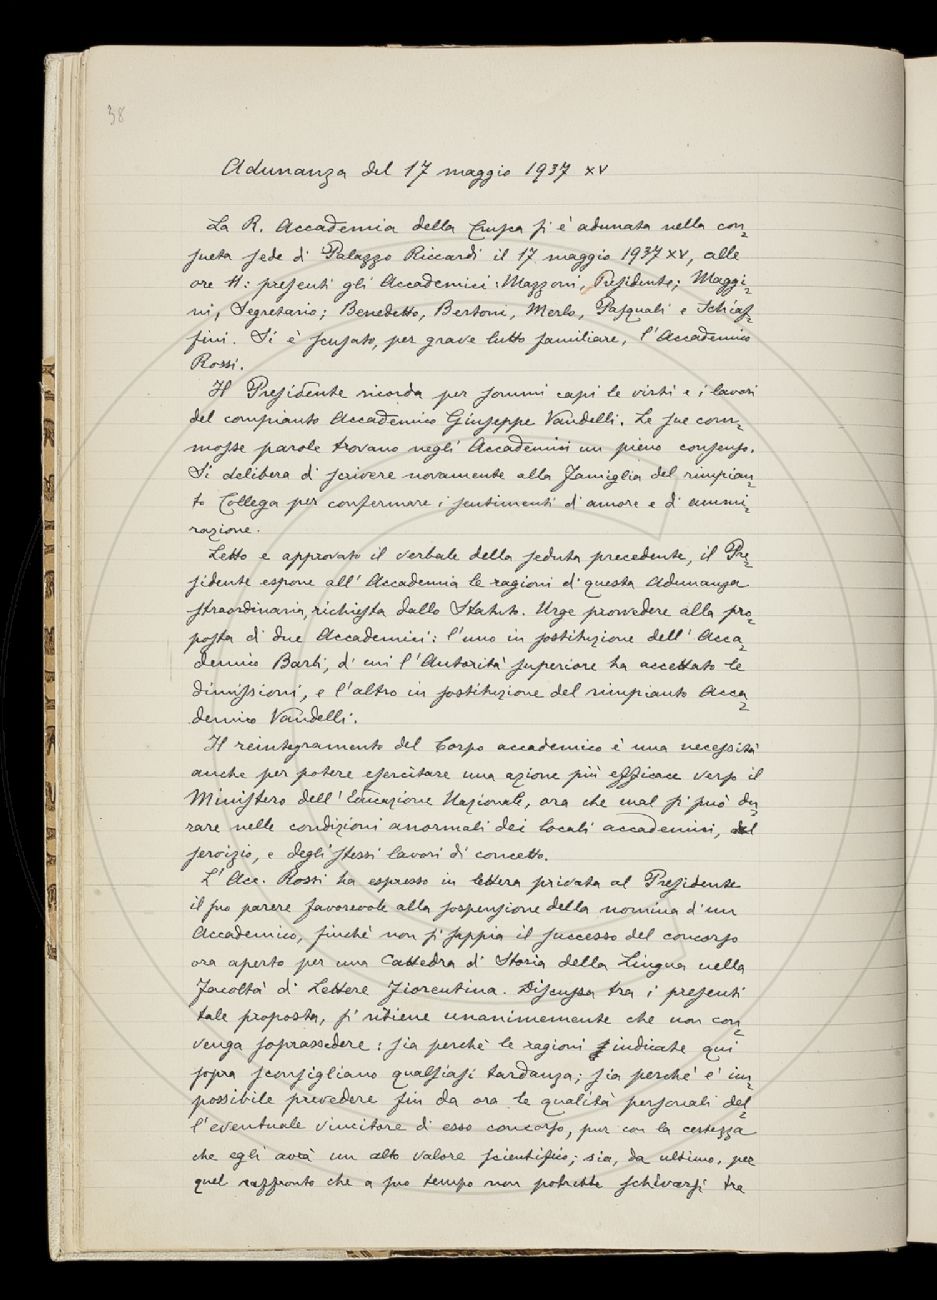 38
Adunanza del 17 maggio 1937 XV
La R. Accademia della Crusca si è adunata nella con=
sueta sede di Palazzo Riccardi il 17 maggio 1937 XV, alle
ore 11: presenti gli Accademici: Mazzoni, Presidente; Maggi=
ni, Segretario; Benedetto, Bertoni, Merlo, Pasquali e Schiaf=
fini. Si è scusato, per grave lutto familiare, l'Accademico
Rossi.
Il Presidente ricorda per sommi capi le virtù e i lavori
del compianto Accademico Giuseppe Vandelli. Le sue com=
mosse parole trovano negli Accademici un pieno consenso.
Si delibera di scrivere novamente alla famiglia del rimpian=
to Collega per confermare i sentimenti d'amore e d'ammi=
razione.
Letto e approvato il verbale della seduta precedente, il Pre=
sidente espone all'Accademia le ragioni di questa Adunanza
straordinaria, richiesta dallo Statuto. Urge provvedere alla pro=
posta di due Accademici: l'uno in sostituzione dell'Acca=
demico Barbi, di cui l'Autorità superiore ha accettato le
dimissioni, e l'altro in sostituzione del rimpianto Acca=
demico Vandelli.
Il reintegramento del Corpo accademico è una necessità
anche per potere esercitare una azione più efficace verso il
Ministero dell'Educazione Nazionale, ora che mal si può du=
rare nelle condizioni anormali dei locali accademici, del
servizio, e degli stessi lavori di concetto.
L'Acc. Rossi ha espresso in lettera privata al Presidente
il suo parere favorevole alla sospensione della nomina d'un
Accademico, finché non si sappia il successo del concorso
ora aperto per una Cattedra di Storia della Lingua nella
Facoltà di Lettere Fiorentina. Discussa tra i presenti
tale proposta, si ritiene unanimemente che non con=
venga soprassedere: sia perché le ragioni indicate qui
sopra sconsigliano qualsiasi tardanza; sia perché è im=
possibile prevedere fin da ora le qualità personali del=
l'eventuale vincitore di esso concorso, pur con la certezza
che egli avrà un alto valore scientifico; sia, da ultimo, per
quel raffronto che a suo tempo non potrebbe schivarsi tra